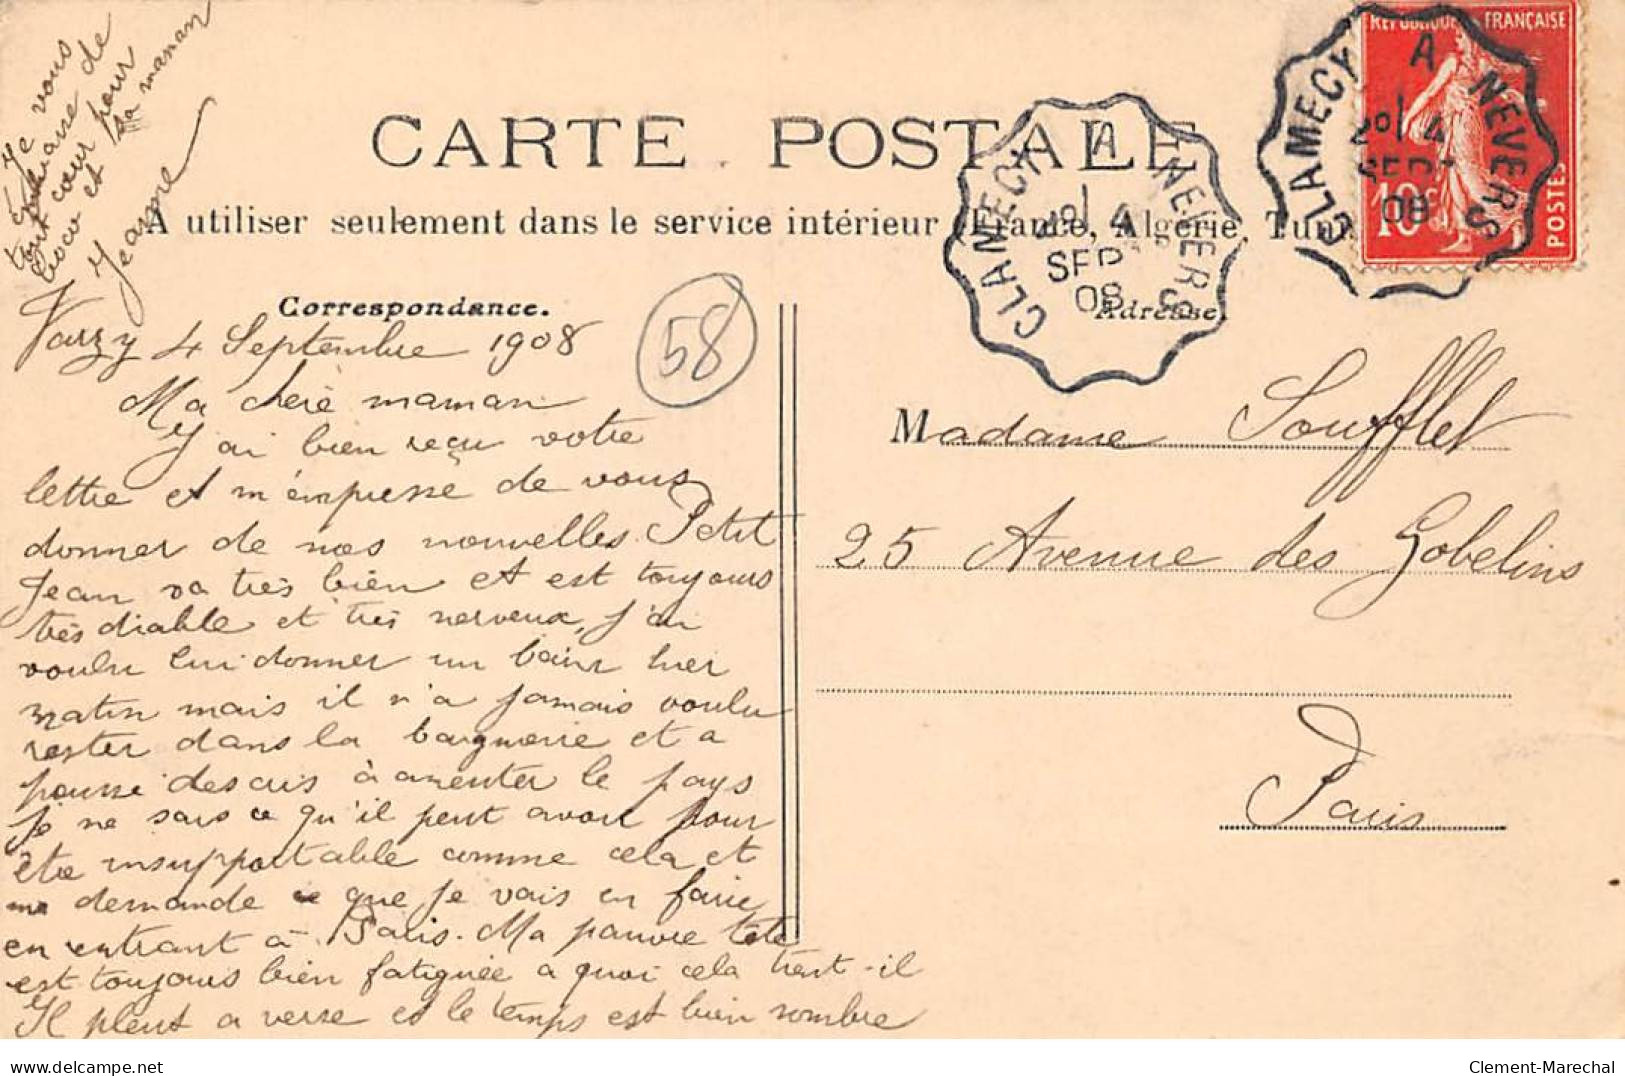 Je vous
embrasse de
tout cœur pour
Coco et sa maman
Jeanne
REPUBLIQUE FRANÇAISE
10c
POSTES
CLAMECY A NEVERS
2º 4
SEPT
08
CARTE POSTALE
CLAMECY A NEVERS
4
SEPT
08
A utiliser seulement dans le service intérieur (France, Algérie, Tuni
Correspondance.
58
Adresse.
Varzy 4 Septembre 1908
Ma chère maman
J'ai bien reçu votre
lettre et m'empresse de vous
donner de nos nouvelles. Petit
Jean va très bien et est toujours
très diable et très nerveux, j'ai
voulu lui donner un bain hier
matin mais il n'a jamais voulu
rester dans la baignoire et a
poussé des cris à ameuter le pays
Je ne sais ce qu'il peut avoir pour
être insupportable comme cela et
me demande ce que je vais en faire
en rentrant à Paris. Ma pauvre tête
est toujours bien fatiguée a quoi cela tient-il
Il pleut a verse et le temps est bien sombre
Madame Soufflet
25 Avenue des Gobelins
Paris
delcampe.net
Clement-Marechal